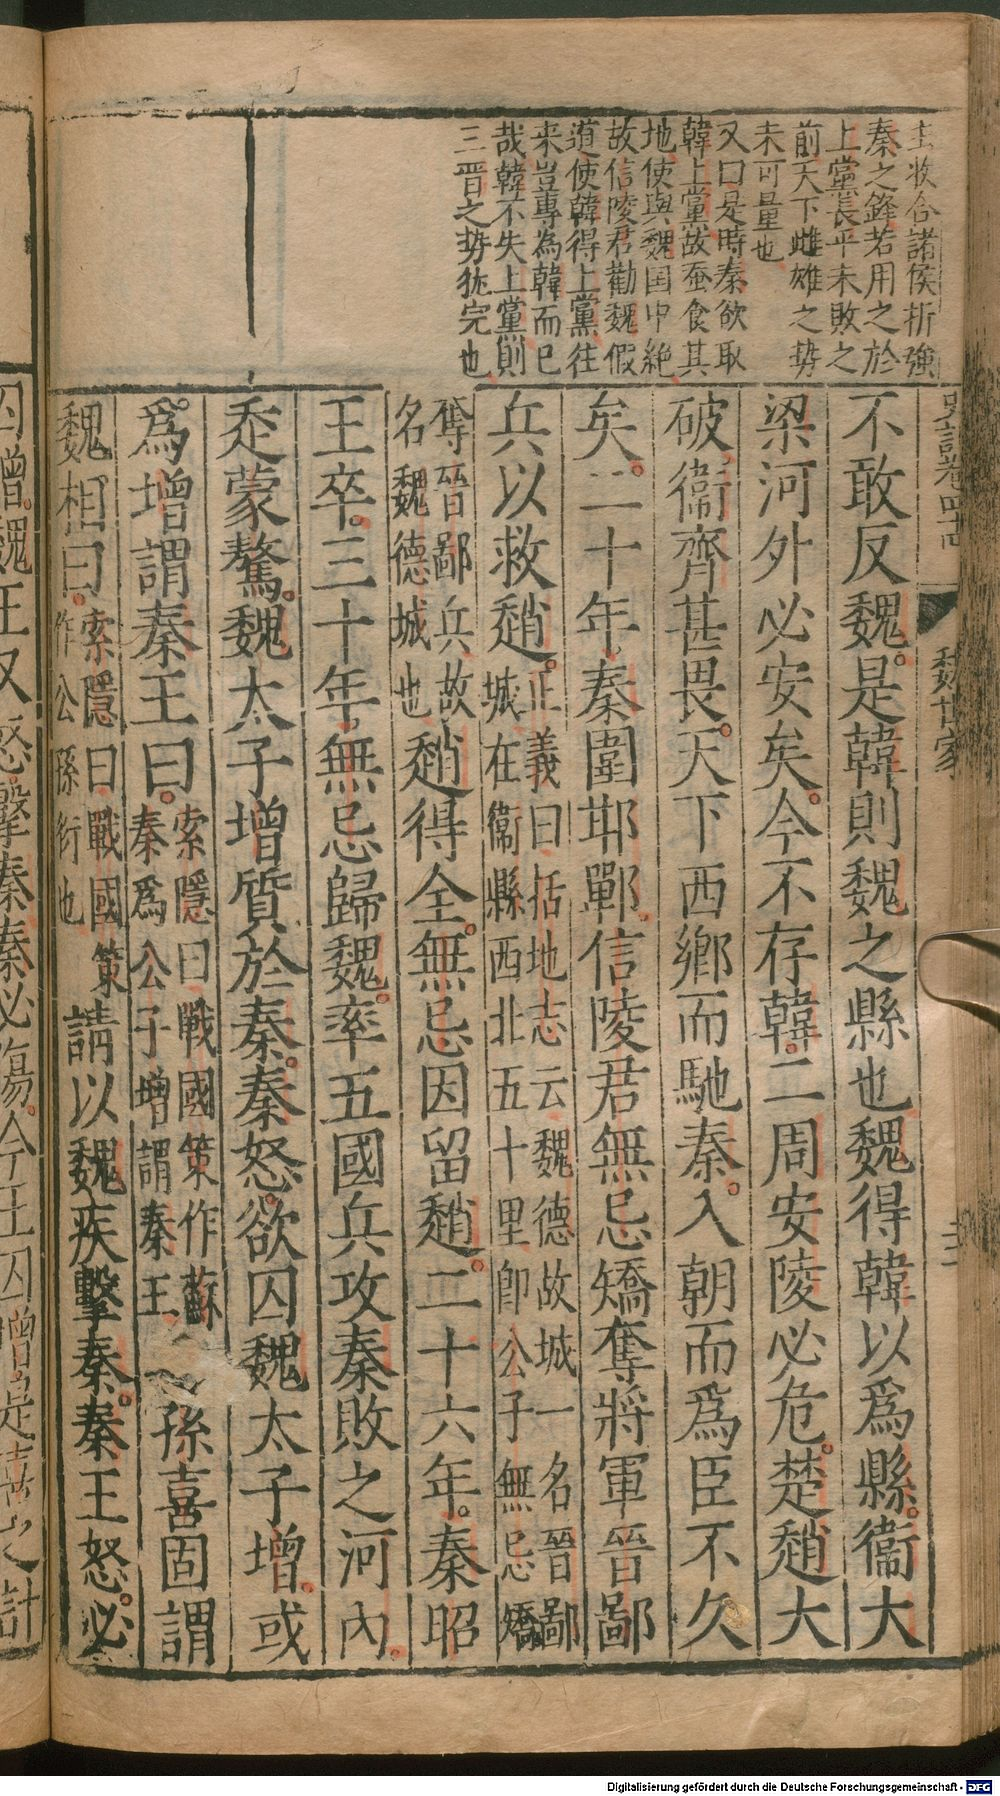 主收合諸侯折強
秦之鋒若用之於
上黨長平未敗之
前天下雌雄之勢
未可量也
又曰是時秦欲取
韓上黨故蚕食其
地使與魏国中絶
故信陵君勸魏假
道使韓得上黨往
来豈專為韓而已
哉韓不失上黨則
三晋之势犹完也
史記卷四十四
魏世家
不敢反魏是韓則魏之縣也魏得韓以爲縣衞大
梁河外必安矣今不存韓二周安陵必危楚趙大
破衞齊甚畏天下西鄉而馳秦入朝而爲臣不久
矣二十年秦圍邯鄲信陵君無忌矯奪將軍晉鄙
兵以救趙正義曰括地志云魏德故城一名晉鄙
城在衞縣西北五十里卽公子無忌矯
奪晉鄙兵故
名魏德城也趙得全無忌因留趙二十六年秦昭
王卒三十年無忌歸魏率五國兵攻秦敗之河內
走蒙驁魏太子增質於秦秦怒欲囚魏太子增或
爲增謂秦王曰索隱曰戰國策作蘇
秦爲公子增謂秦王孫喜固謂
魏相曰索隱曰戰國策
作公孫衍也請以魏疾擊秦秦王怒必
囚增魏王又怒擊秦秦必傷今王囚增是喜之計
Digitalisierung gefördert durch die Deutsche Forschungsgemeinschaft - DFG